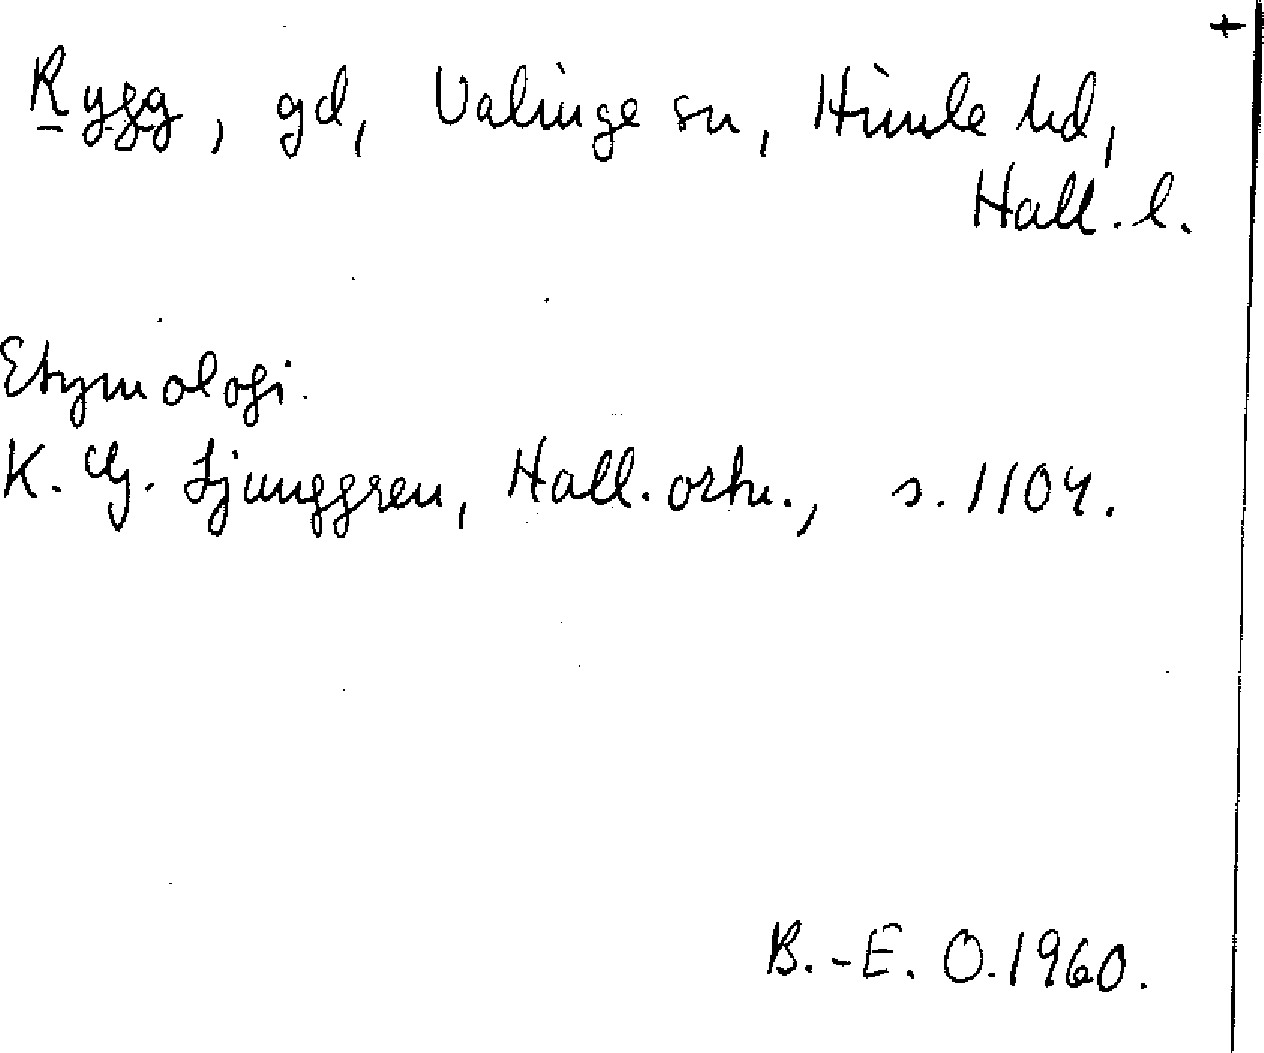 +
Rygg, gd, Valinge sn, Himle hd,
Hall. l.
Etymologi.
K. G. Ljunggren, Hall. ortn., s. 1104.
B.-E. O. 1960.